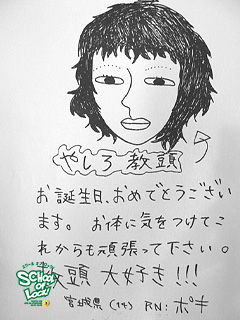 やしろ 教頭
お誕生日、おめでとうござい
ます。 お体に気をつけてこ
れからも頑張って下さい。
教頭 大好き!!!
宮城県 (14) RN: ポキ
SCHOOL
OF
LOCK!